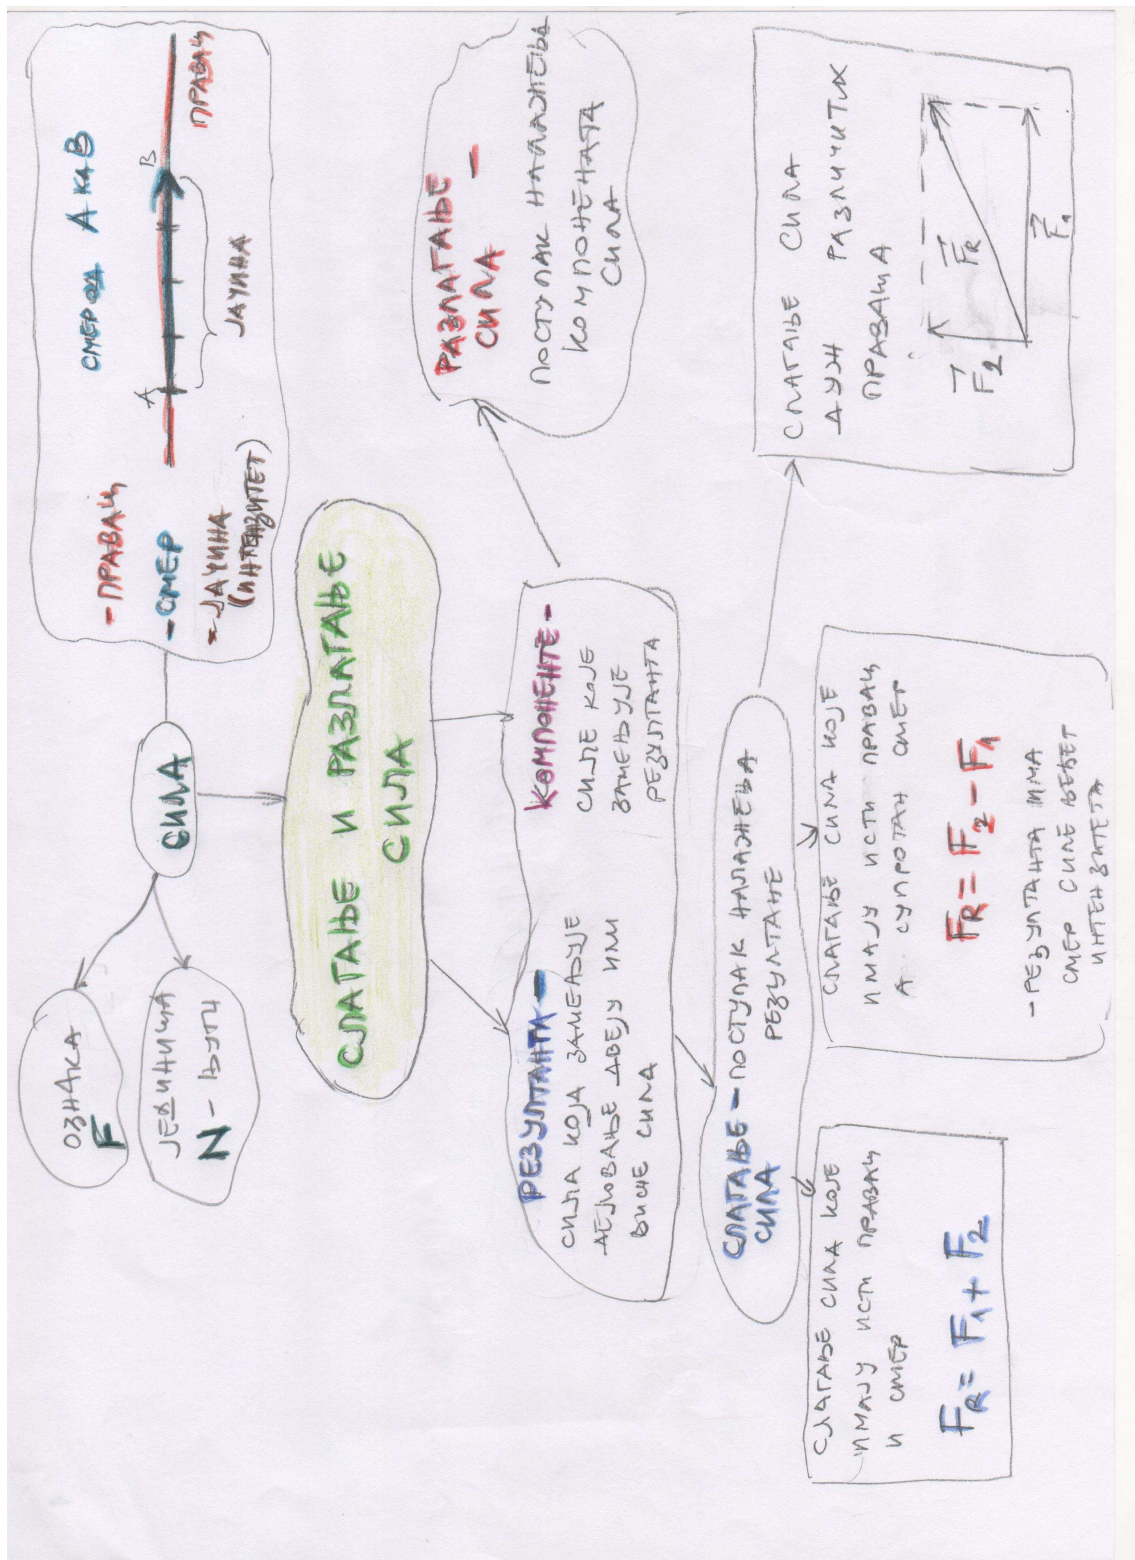 ОЗНАКА
F
ЈЕДИНИЦА
N - ЊУТН
СИЛА
- ПРАВАЦ
- СМЕР
- ЈАЧИНА
(ИНТЕНЗИТЕТ)
СМЕР ОД А КА В
А
В
ЈАЧИНА
ПРАВАЦ
СЛАГАЊЕ И РАЗЛАГАЊЕ
СИЛА
РЕЗУЛТАНТА -
СИЛА КОЈА ЗАМЕЊУЈЕ
ДЕЛОВАЊЕ ДВЕЈУ ИЛИ
ВИШЕ СИЛА
КОМПОНЕНТЕ -
СИЛЕ КОЈЕ
ЗАМЕЊУЈЕ
РЕЗУЛТАНТА
РАЗЛАГАЊЕ -
СИЛА
ПОСТУПАК НАЛАЖЕЊА
КОМПОНЕНАТА
СИЛА
СЛАГАЊЕ - ПОСТУПАК НАЛАЖЕЊА
СИЛА РЕЗУЛТАНЕ
СЛАГАЊЕ СИЛА КОЈЕ
ИМАЈУ ИСТИ ПРАВАЦ
И СМЕР
FR = F1 + F2
СЛАГАЊЕ СИЛА КОЈЕ
ИМАЈУ ИСТИ ПРАВАЦ
А СУПРОТАН СМЕР
FR = F2 - F1
- РЕЗУЛТАНТА ИМА
СМЕР СИЛЕ ВЕЋЕГ
ИНТЕНЗИТЕТА
СЛАГАЊЕ СИЛА
ДУЖ РАЗЛИЧИТИХ
ПРАВАЦА
F2
FR
F1